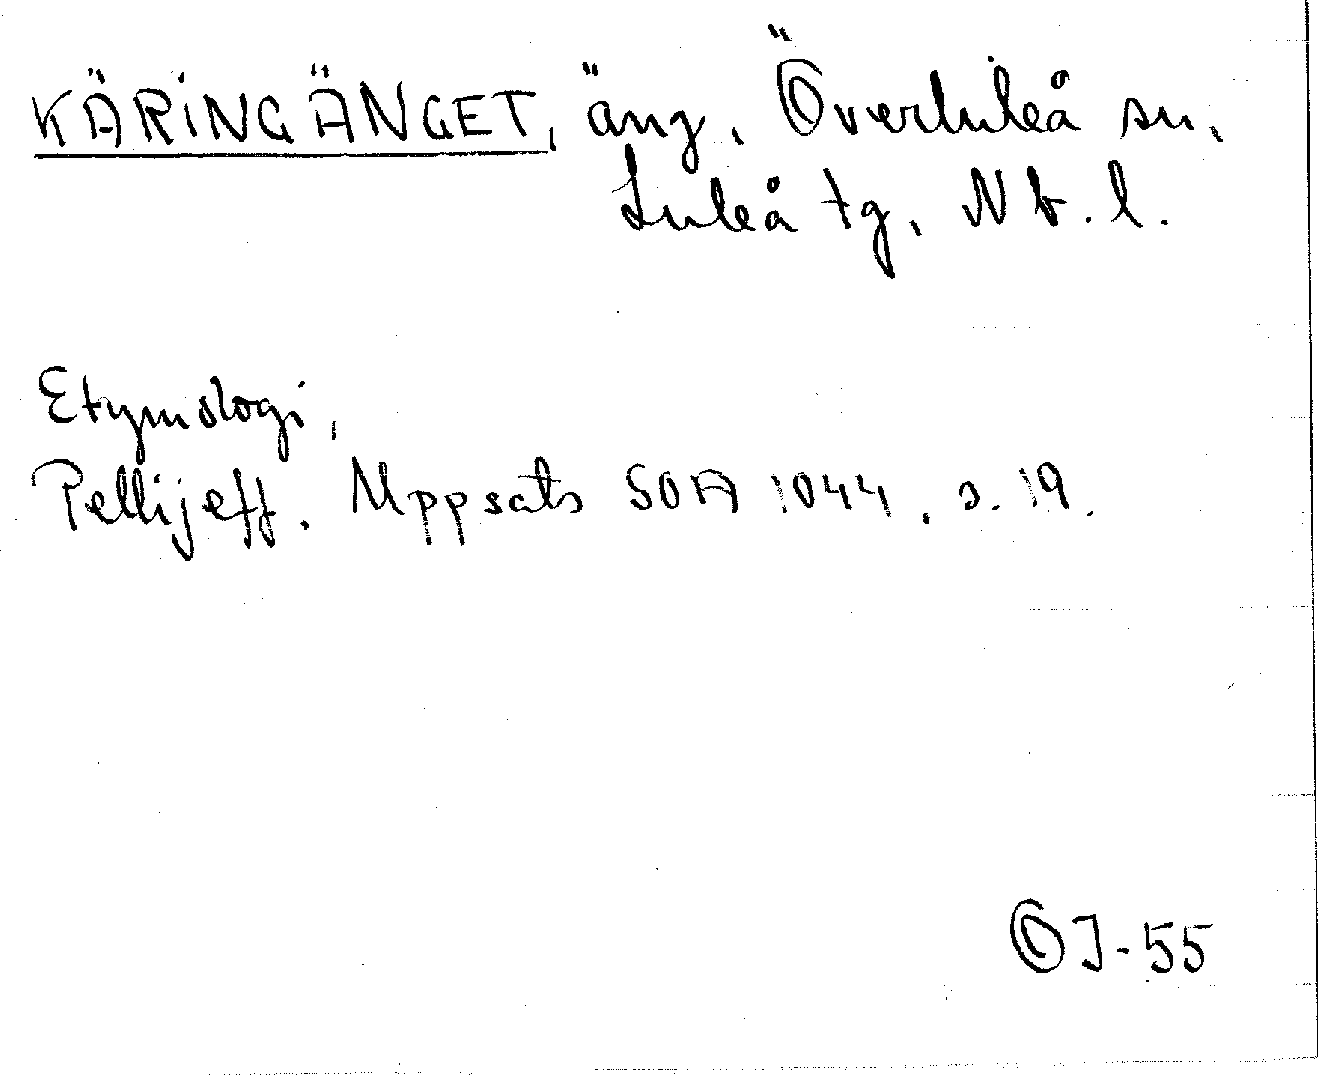 KÄRINGÄNGET, äng, Överluleå sn,
Luleå tg, Nb. l.
Etymologi,
Pellijeff. Uppsats SOA 1044, s. 19.
OJ-55